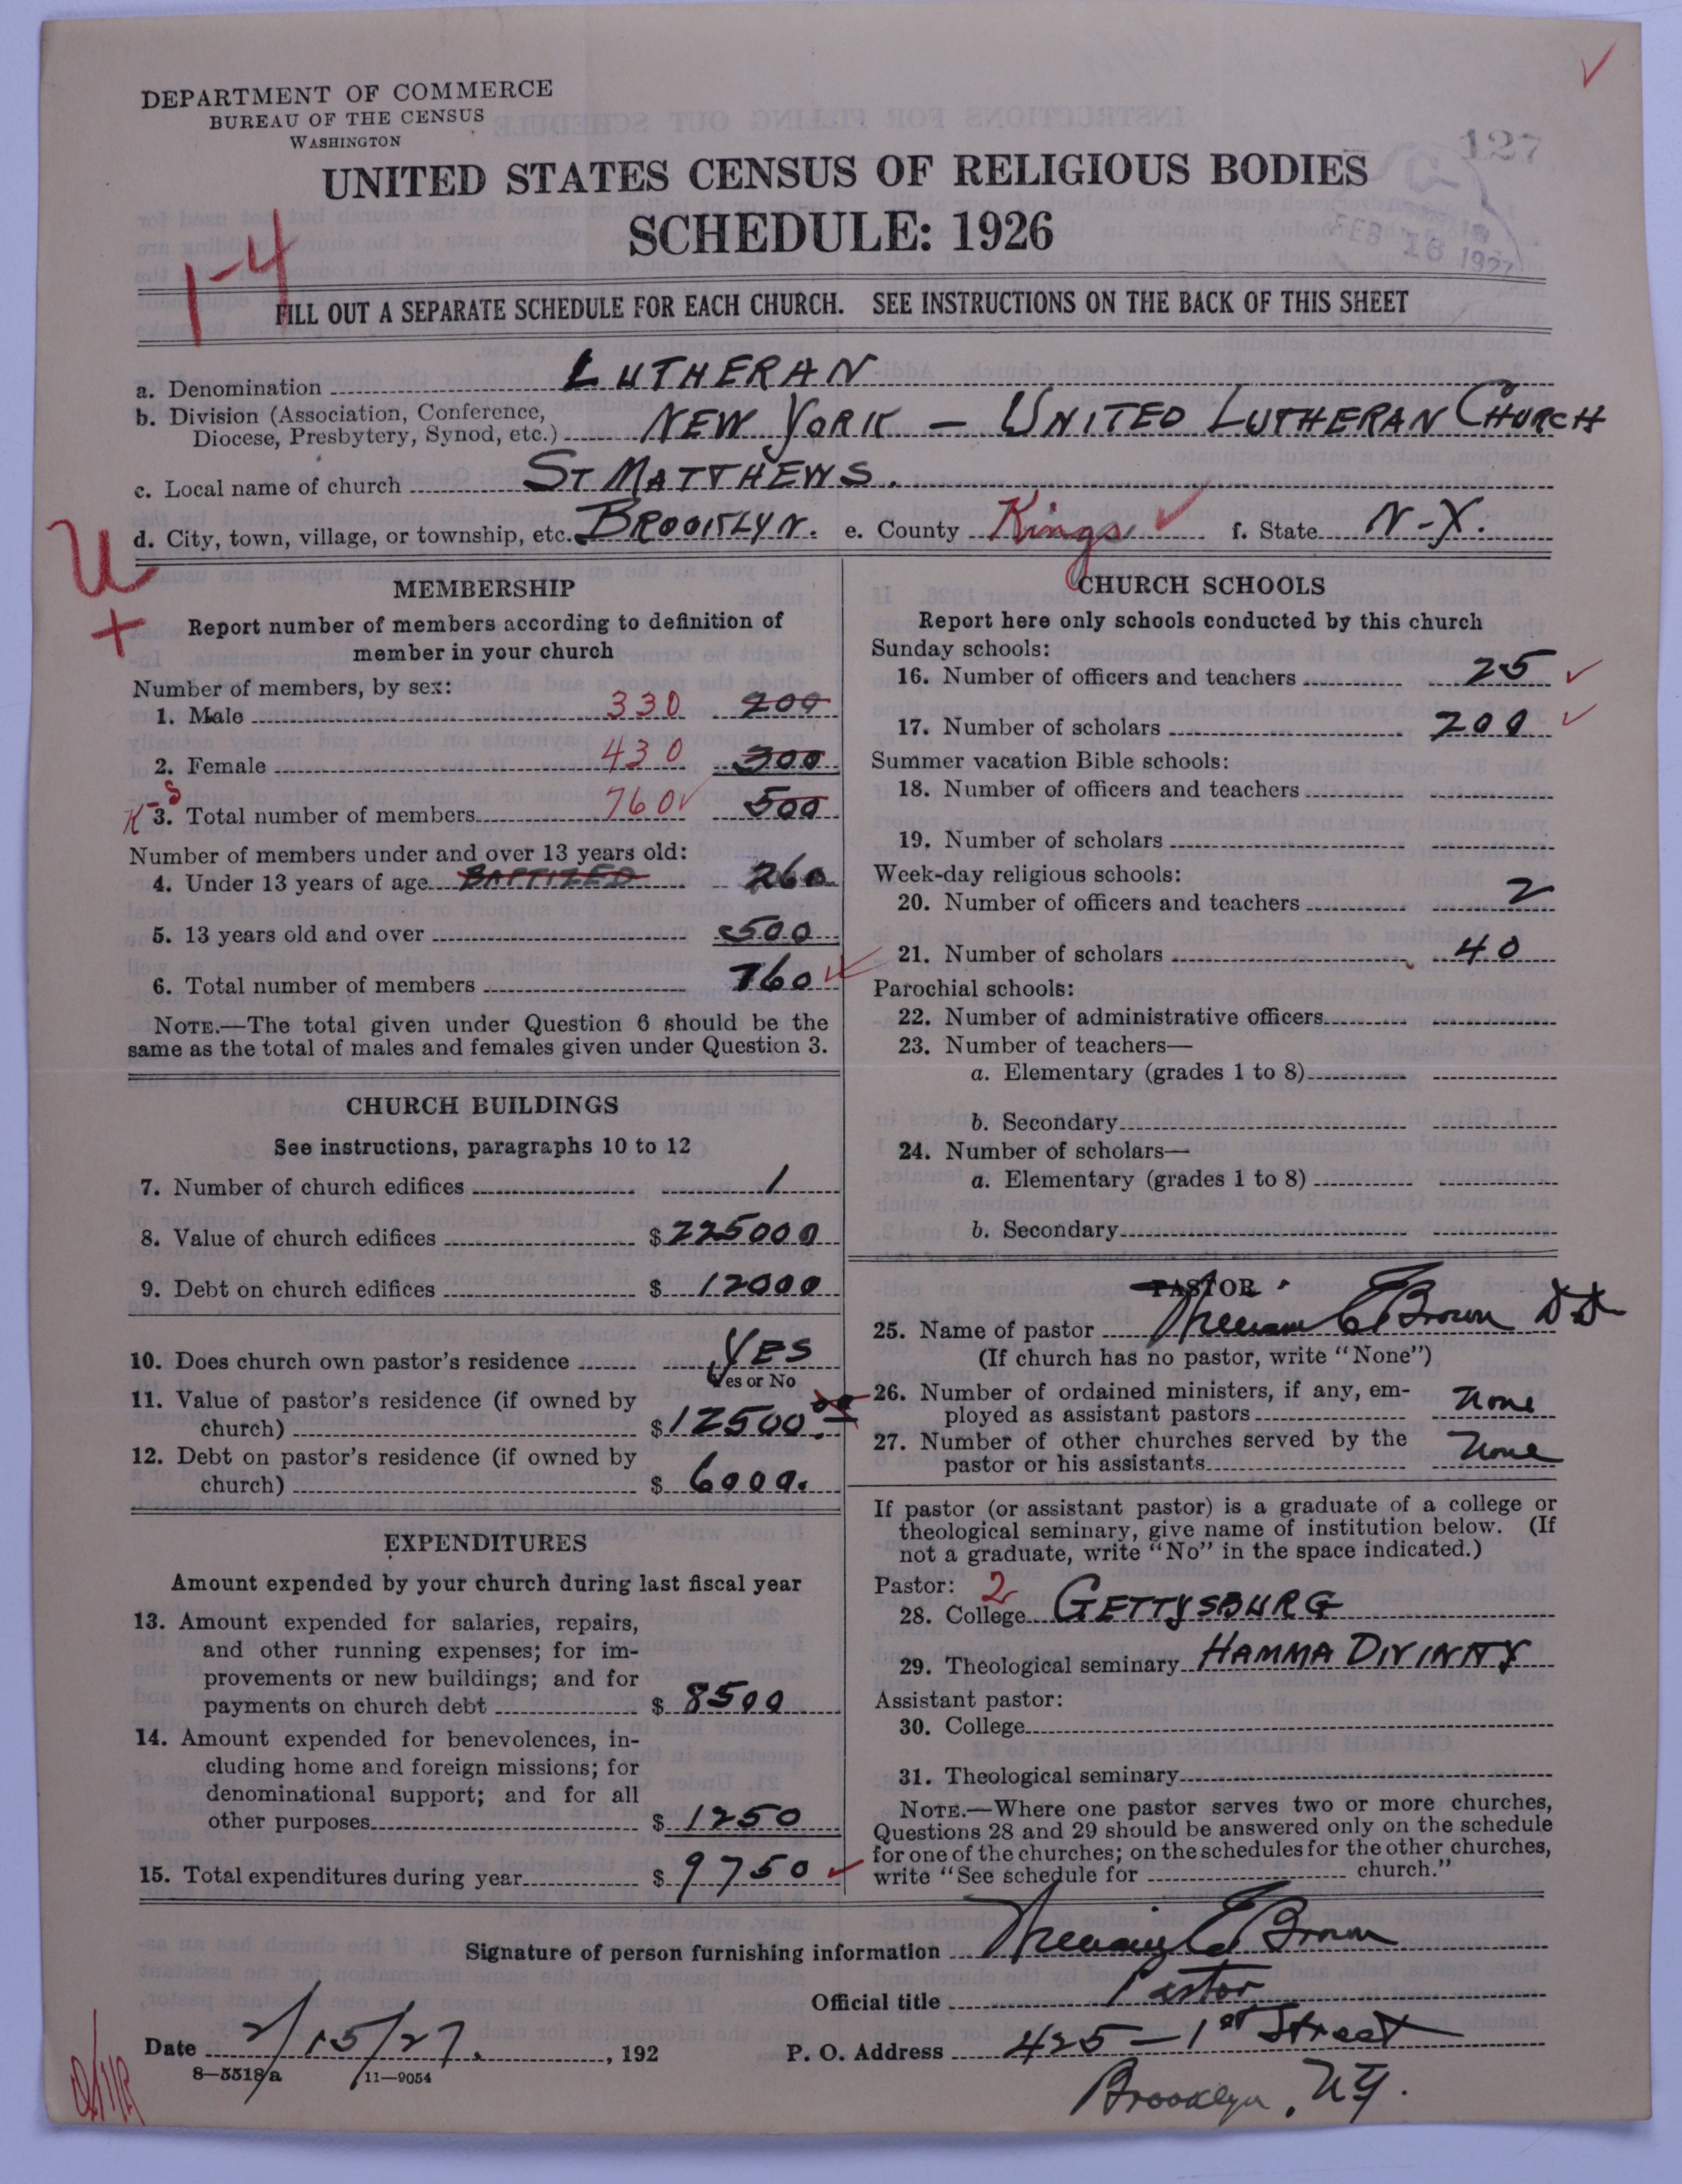 DEPARTMENT OF COMMERCE
BUREAU OF THE CENSUS
WASHINGTON
127
UNITED STATES CENSUS OF RELIGIOUS BODIES
SCHEDULE: 1926
FEB 18 1927
1-4
FILL OUT A SEPARATE SCHEDULE FOR EACH CHURCH. SEE INSTRUCTIONS ON THE BACK OF THIS SHEET
a. Denomination LUTHERAN
b. Division (Association, Conference,
Diocese, Presbytery, Synod, etc.) NEW YORK – UNITED LUTHERAN CHURCH
c. Local name of church ST MATTHEWS.
d. City, town, village, or township, etc. BROOKLYN. e. County Kings f. State N-Y.
U
+
MEMBERSHIP
Report number of members according to definition of
member in your church
Number of members, by sex:
1. Male 330 200
2. Female 430 300
K-S
3. Total number of members 760 500
Number of members under and over 13 years old:
4. Under 13 years of age BAPTIZED 260
5. 13 years old and over 500
6. Total number of members 760
NOTE.—The total given under Question 6 should be the
same as the total of males and females given under Question 3.
CHURCH BUILDINGS
See instructions, paragraphs 10 to 12
7. Number of church edifices 1
8. Value of church edifices $225000
9. Debt on church edifices $ 12000
10. Does church own pastor's residence YES
Yes or No
11. Value of pastor's residence (if owned by
church) $12500.
12. Debt on pastor's residence (if owned by
church) $ 6000.
EXPENDITURES
Amount expended by your church during last fiscal year
13. Amount expended for salaries, repairs,
and other running expenses; for im-
provements or new buildings; and for
payments on church debt $ 8500
14. Amount expended for benevolences, in-
cluding home and foreign missions; for
denominational support; and for all
other purposes $ 1250
15. Total expenditures during year $ 9750
CHURCH SCHOOLS
Report here only schools conducted by this church
Sunday schools:
16. Number of officers and teachers 25
17. Number of scholars 200
Summer vacation Bible schools:
18. Number of officers and teachers
19. Number of scholars
Week-day religious schools:
20. Number of officers and teachers 2
21. Number of scholars 40
Parochial schools:
22. Number of administrative officers
23. Number of teachers—
a. Elementary (grades 1 to 8)
b. Secondary
24. Number of scholars—
a. Elementary (grades 1 to 8)
b. Secondary
PASTOR
25. Name of pastor William E Brown DD
(If church has no pastor, write "None")
26. Number of ordained ministers, if any, em-
ployed as assistant pastors None
27. Number of other churches served by the
pastor or his assistants None
If pastor (or assistant pastor) is a graduate of a college or
theological seminary, give name of institution below. (If
not a graduate, write "No" in the space indicated.)
Pastor: 2
28. College GETTYSBURG
29. Theological seminary HAMMA DIVINITY
Assistant pastor:
30. College
31. Theological seminary
NOTE.—Where one pastor serves two or more churches,
Questions 28 and 29 should be answered only on the schedule
for one of the churches; on the schedules for the other churches,
write "See schedule for church."
Signature of person furnishing information William E Brown
Official title Pastor
Date 2/15/27. , 192
P. O. Address 425 – 1st Street
Brooklyn, N.Y.
8—5518a 11—9054